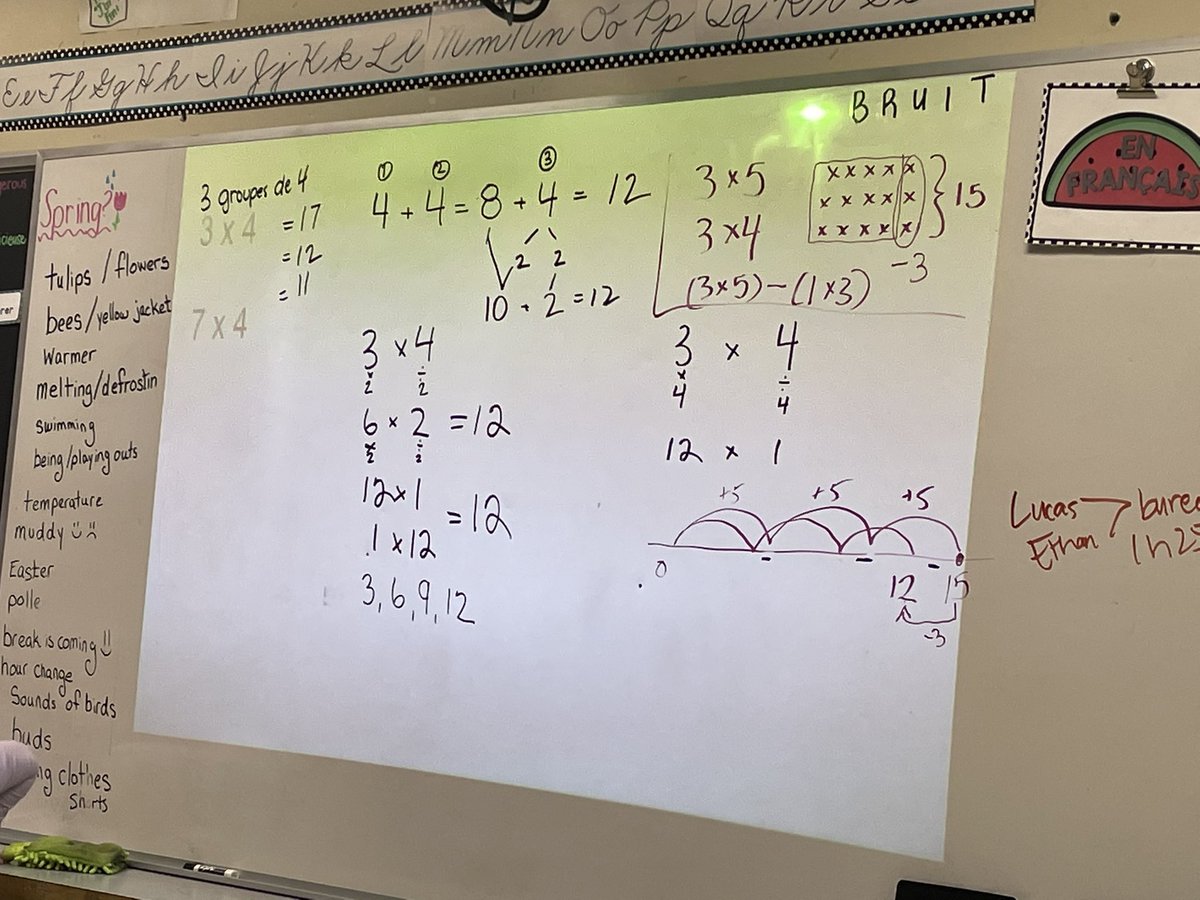 Ee Ff Gg Hh Ii Jj Kk Ll Mm Nn Oo Pp Qq
BRUIT
EN
FRANÇAIS
Spring?
tulips / flowers
bees / yellow jacket
Warmer
melting/defrostin
swimming
being/playing outs
temperature
muddy
Easter
polle
break is coming
hour change
Sounds of birds
buds
clothes
Shorts
3 groupes de 4
3 x 4 = 17
= 12
= 11
7 x 4
① ② ③
4 + 4 = 8 + 4 = 12
2 2
10 + 2 = 12
3 x 4
x2 ÷2
6 x 2 = 12
x2 ÷2
12x1
1 x 12
= 12
3, 6, 9, 12
3 x 5
3 x 4
x x x x x
x x x x x
x x x x x
} 15
-3
(3x5) - (1x3)
3 x 4
x4 ÷4
12 x 1
+5 +5 +5
0 12 15
-3
Lucas
Ethan